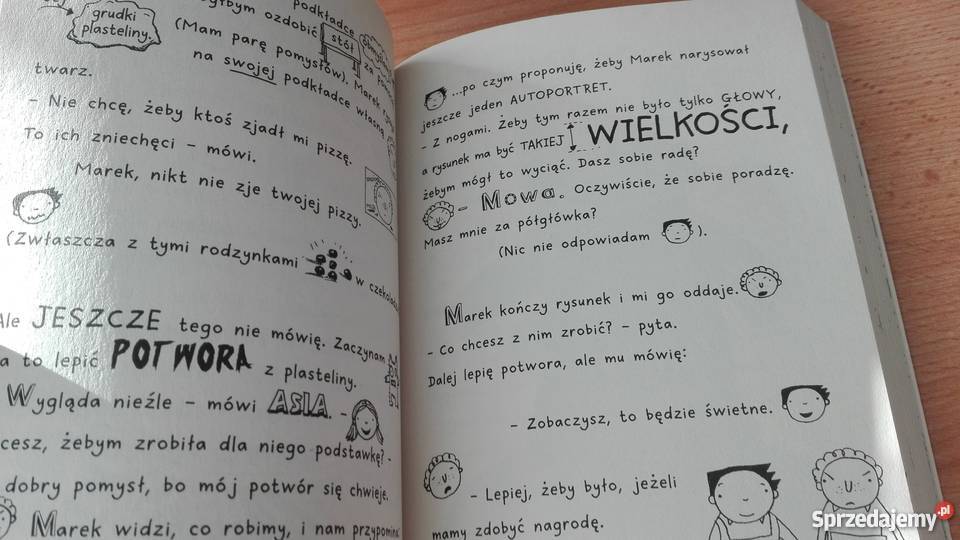 grudki
plasteliny.
podkładce
ozdobić
stół
(Mam parę pomysłów). Marek
na swojej podkładce własną
twarz.
– Nie chcę, żeby ktoś zjadł mi pizzę.
To ich zniechęci – mówi.
Marek, nikt nie zje twojej pizzy.
(Zwłaszcza z tymi rodzynkami
w
JESZCZE tego nie mówię. Zaczynam
a to lepić POTWORA z plasteliny.
Wygląda nieźle – mówi ASIA. –
żebym zrobiła dla niego podstawkę? –
dobry pomysł, bo mój potwór się chwieje.
Marek widzi, co robimy, i nam
...po czym proponuję, żeby Marek narysował
jeszcze jeden AUTOPORTRET.
– Z nogami. Żeby tym razem nie było tylko GŁOWY,
a rysunek ma być TAKIEJ WIELKOŚCI,
żebym mógł to wyciąć. Dasz sobie radę?
– Mowa. Oczywiście, że sobie poradzę.
Masz mnie za półgłówka?
(Nic nie odpowiadam ).
Marek kończy rysunek i mi go oddaje.
– Co chcesz z nim zrobić? – pyta.
Dalej lepię potwora, ale mu mówię:
– Zobaczysz, to będzie świetne.
– Lepiej, żeby było, jeżeli
mamy zdobyć nagrodę.
Sprzedajemy.pl